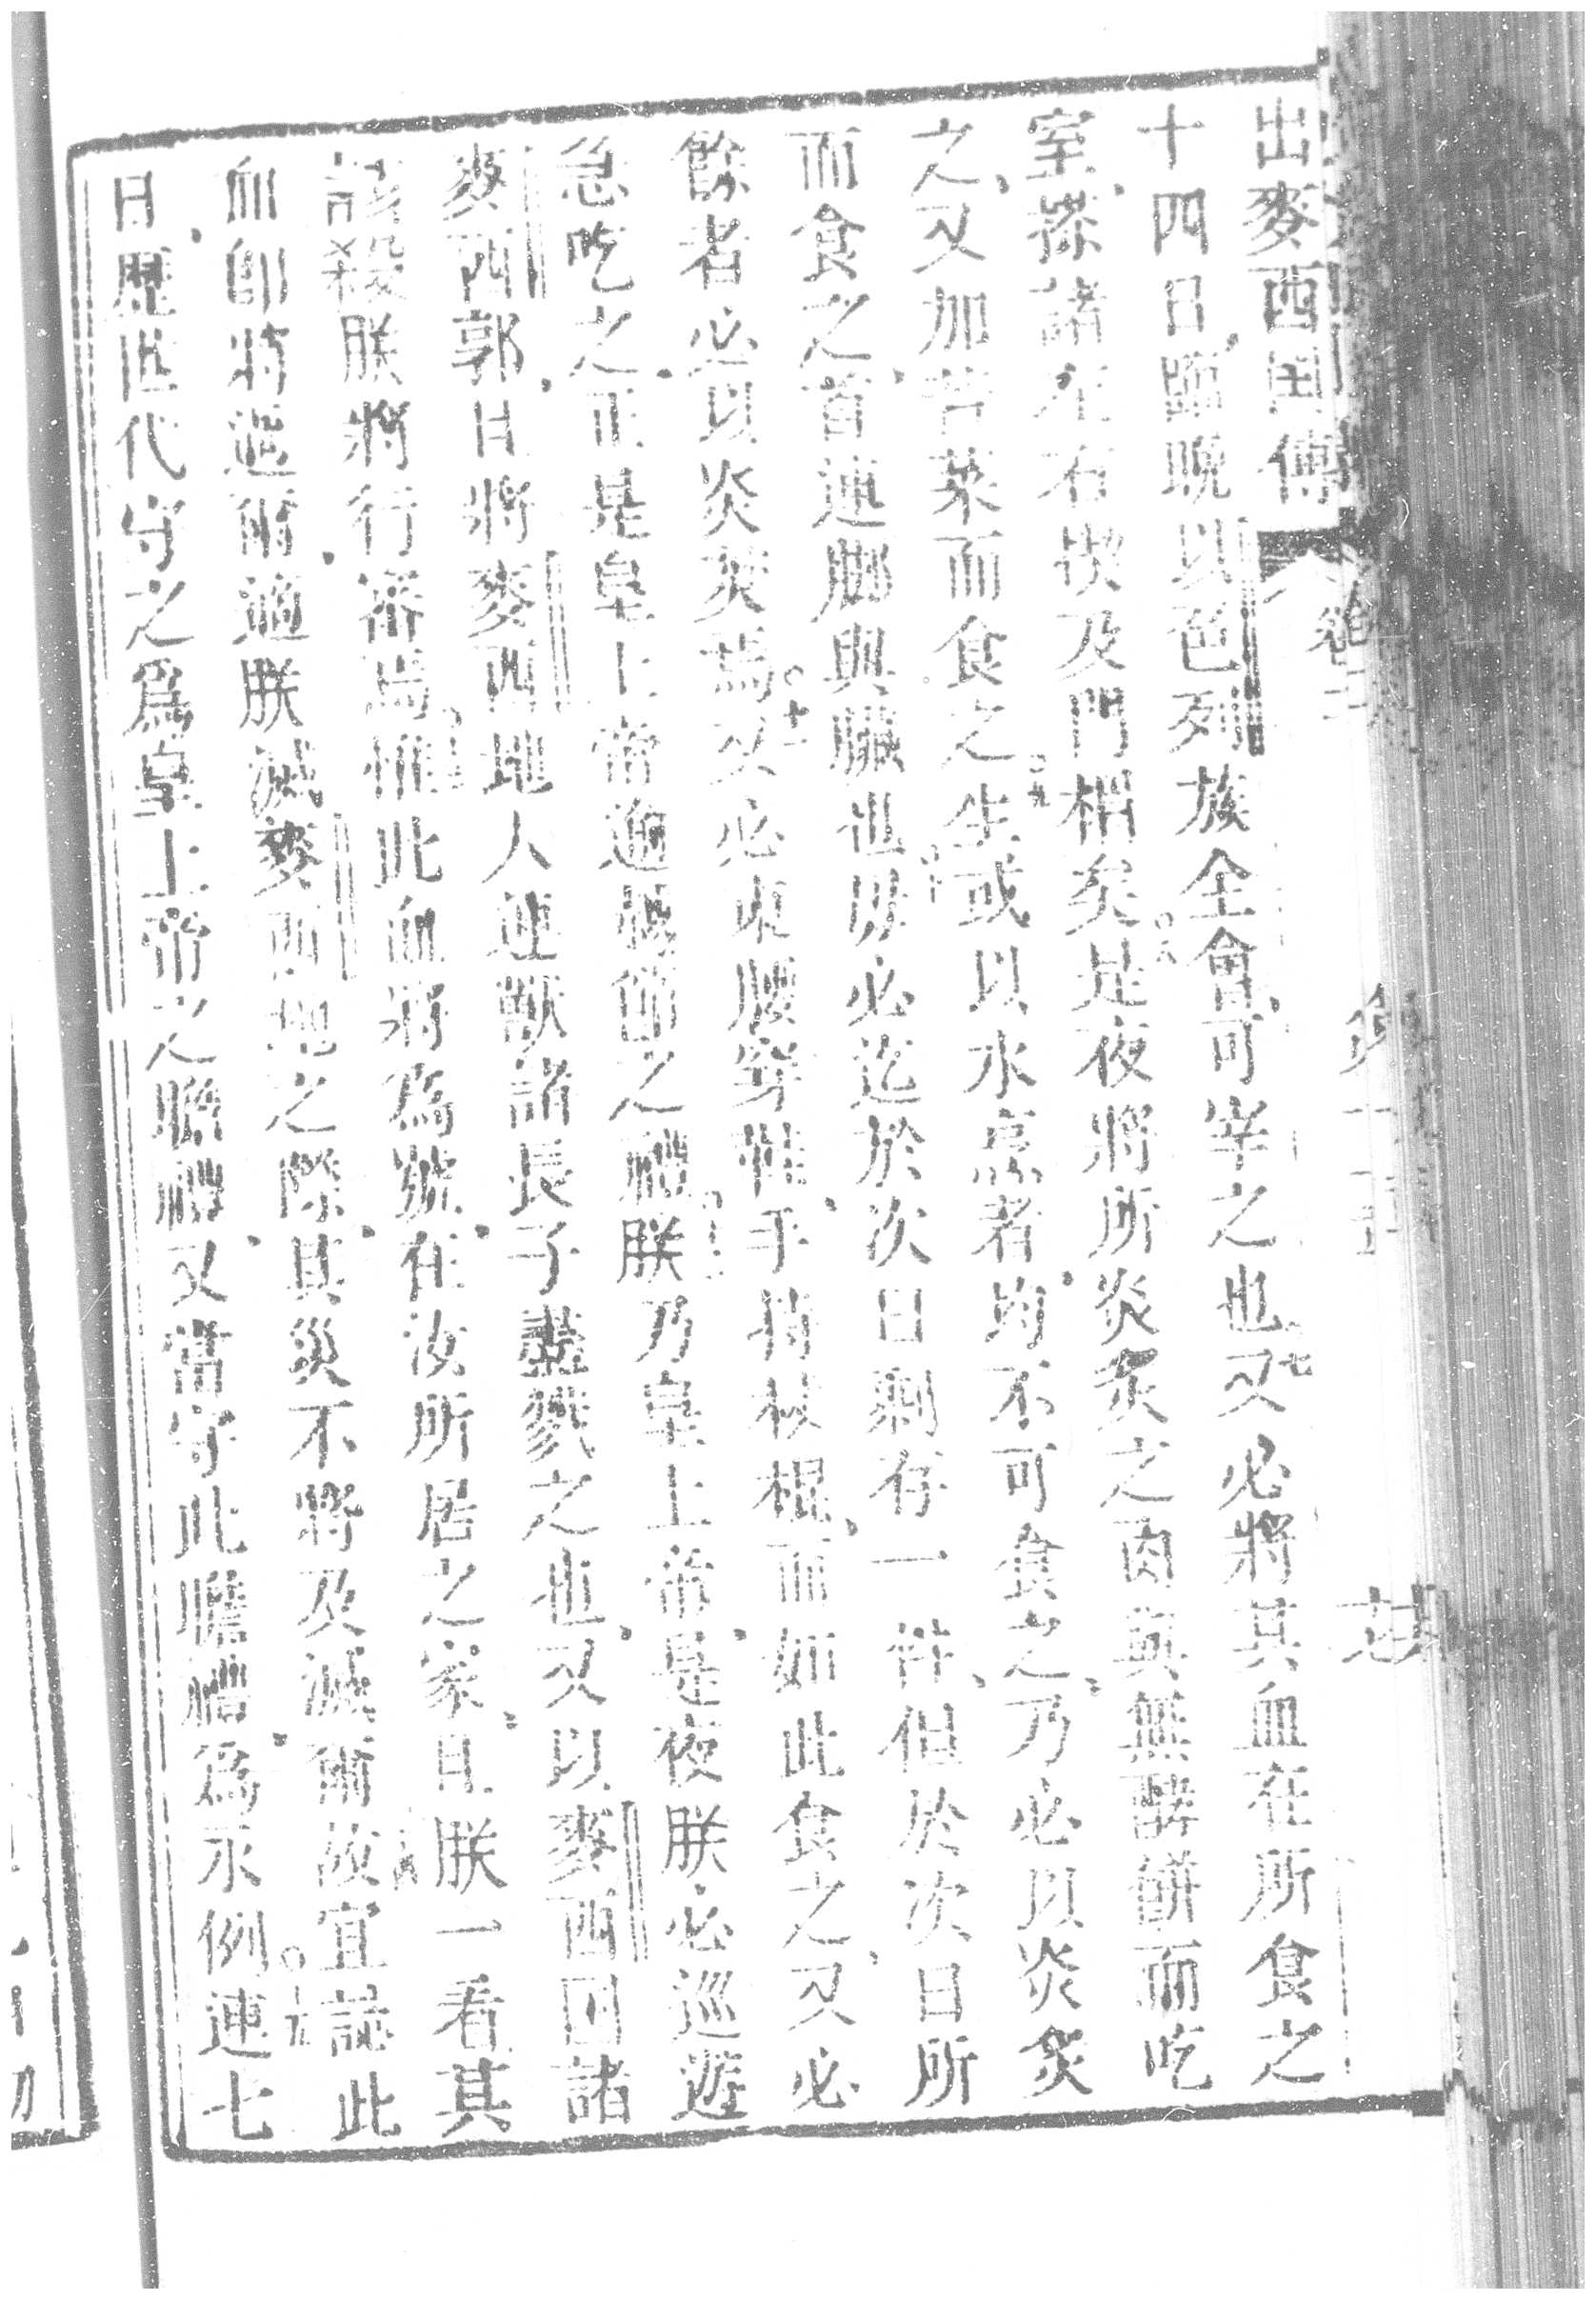 出麥西国傳 卷二
十四日臨晩以色列族全會可宰之也○七又必將其血在所食之
室搽諸左右㭞及門楣矣○八是夜將所炎炙之肉與無酵餅而吃
之又加苦菜而食之○九生或以水烹者均不可食之乃必以炎炙
而食之首連脚與臟也○十毋必迄於次日剩存一件但於次日所
餘者必以炎焚焉○十一又必束腰穿鞋手持杖棍而如此食之又必
急吃之正是皇上帝逾越節之禮○十二朕乃皇上帝是夜朕必巡遊
麥西郭日將麥西地人連獸諸長子盡戮之也又以麥西囯諸
該殺朕將行審焉○十三惟此血將為號在汝所居之家且朕一看其
血卽將逾爾適朕滅麥西地之際其災不將及滅爾○十四故宜誌此
日歷世代守之爲皇上帝之瞻禮又當守此瞻禮爲永例○十五連七